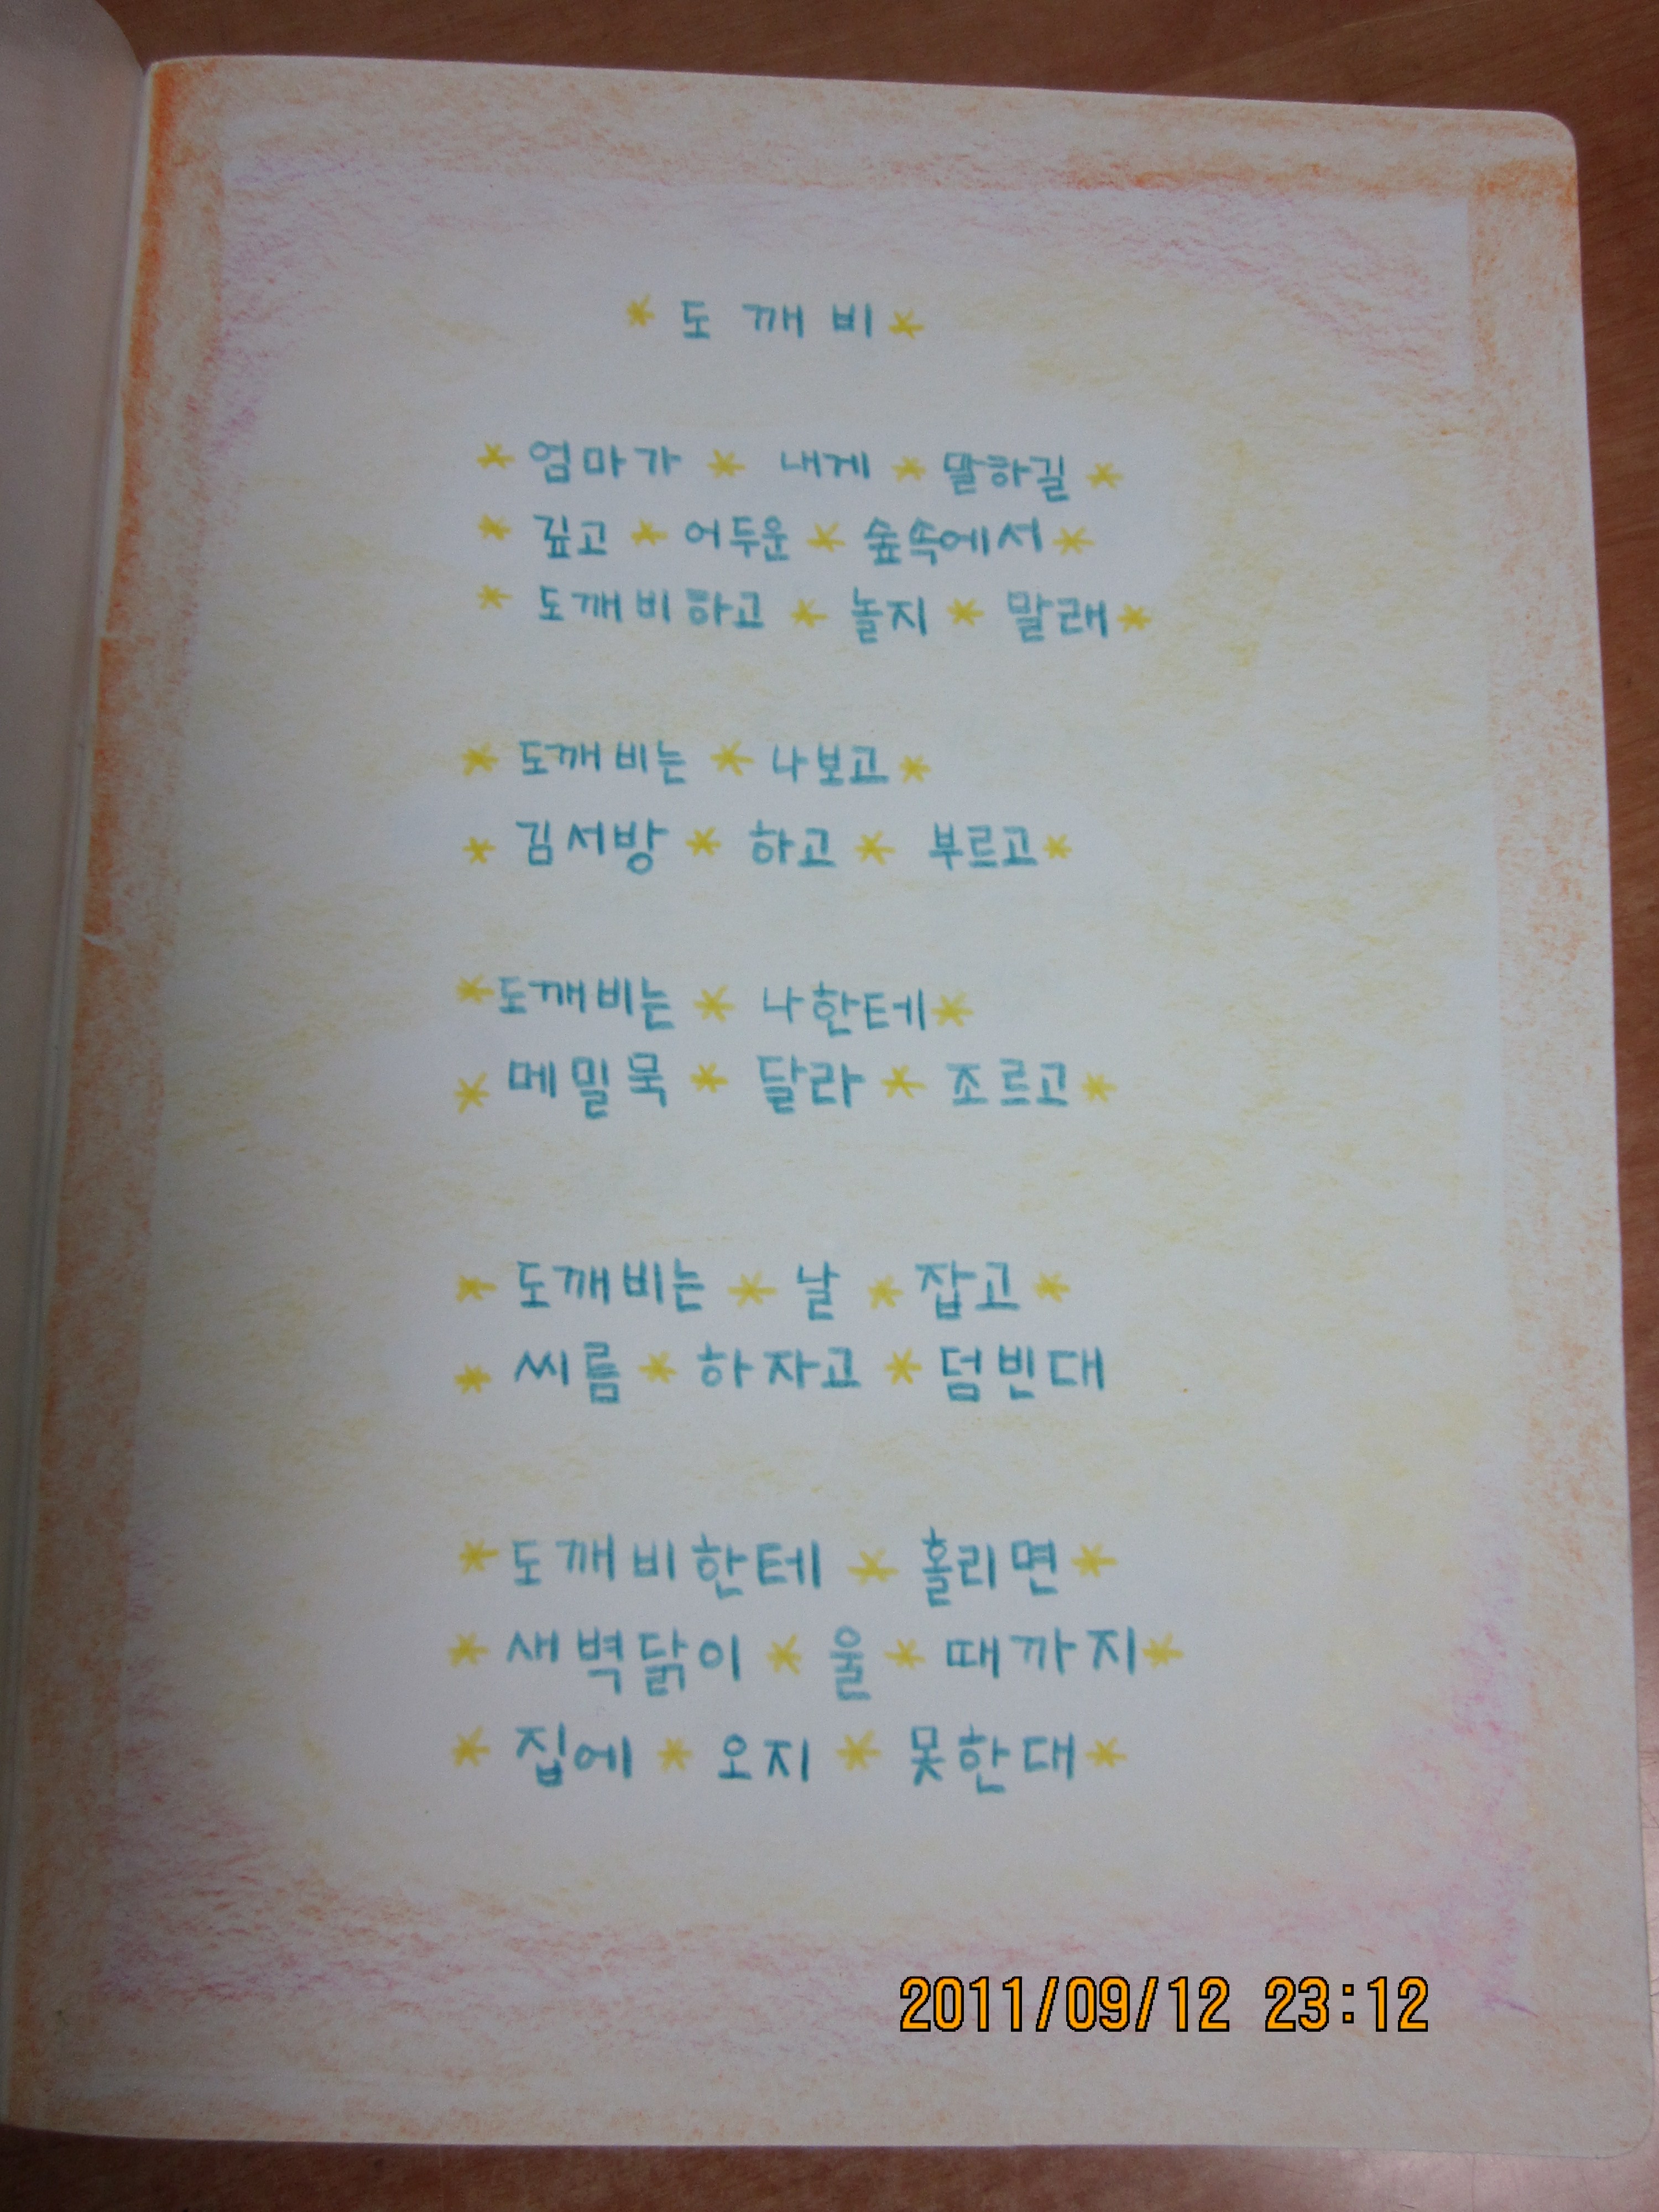 * 도깨비 *
* 엄마가 * 내게 * 말하길 *
* 깊고 * 어두운 * 숲속에서 *
* 도깨비하고 * 놀지 * 말래 *
* 도깨비는 * 나보고 *
* 김서방 * 하고 * 부르고 *
* 도깨비는 * 나한테 *
* 메밀묵 * 달라 * 조르고 *
* 도깨비는 * 날 * 잡고 *
* 씨름 * 하자고 * 덤빈대
* 도깨비한테 * 홀리면 *
* 새벽닭이 * 울 * 때까지 *
* 집에 * 오지 * 못한대 *
2011/09/12 23:12